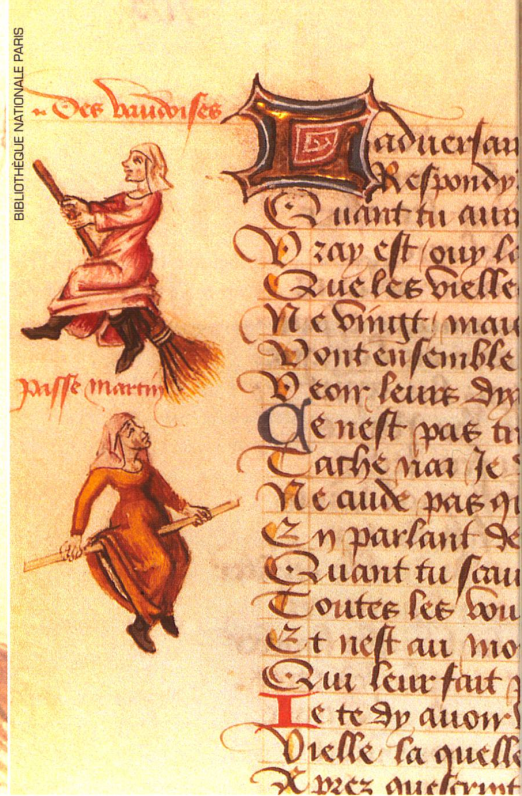 BIBLIOTHÈQUE NATIONALE PARIS
Des vaudoises
Ladversai
Respondy
Quant tu aur
Vray est / ouy lo
Que les vielle
Ne vingt / mai
Vont ensemble
passe martin
Veoir leurs dy
Ce nest pas tr
Tache nai Je
Ne cuide pas qu
En parlant de
Quant tu scau
Toutes les vou
Et nest au mo
Qui leur fait
Ie te dy avoir
Vielle la quelle
Aprez quescript